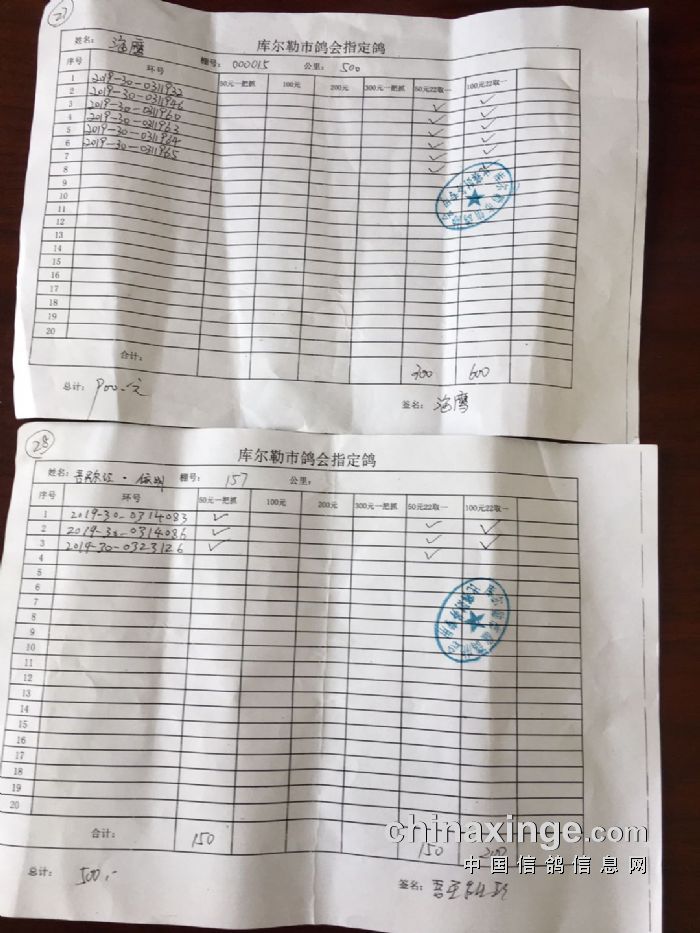 21
库尔勒市鸽会指定鸽
姓名: 海鹰 棚号: 000015 公里: 500
序号 环号 50元一把抓 100元 200元 300元一把抓 50元22取一 100元22取一
1 2019-30-0311932 ✓
2 2019-30-0311946 ✓ ✓
3 2019-30-0311960 ✓ ✓
4 2019-30-0311963 ✓ ✓
5 2019-30-0311964 ✓ ✓
6 2019-30-0311965 ✓ ✓
7 ✓
8
9
10
11
12
13
14
15
16
17
18
19
20
合计: 300 600
总计: 900.元 签名: 海鹰
28
库尔勒市鸽会指定鸽
姓名: 棚号: 157 公里:
序号 环号 50元一把抓 100元 200元 300元一把抓 50元22取一 100元22取一
1 2019-30-0314083 ✓ ✓ ✓
2 2019-30-0314086 ✓ ✓ ✓
3 2019-30-0323126 ✓ ✓
4
5
6
7
8
9
10
11
12
13
14
15
16
17
18
19
20
合计: 150 150 200
总计: 500.- 签名:
chinaxinge.com
中国信鸽信息网